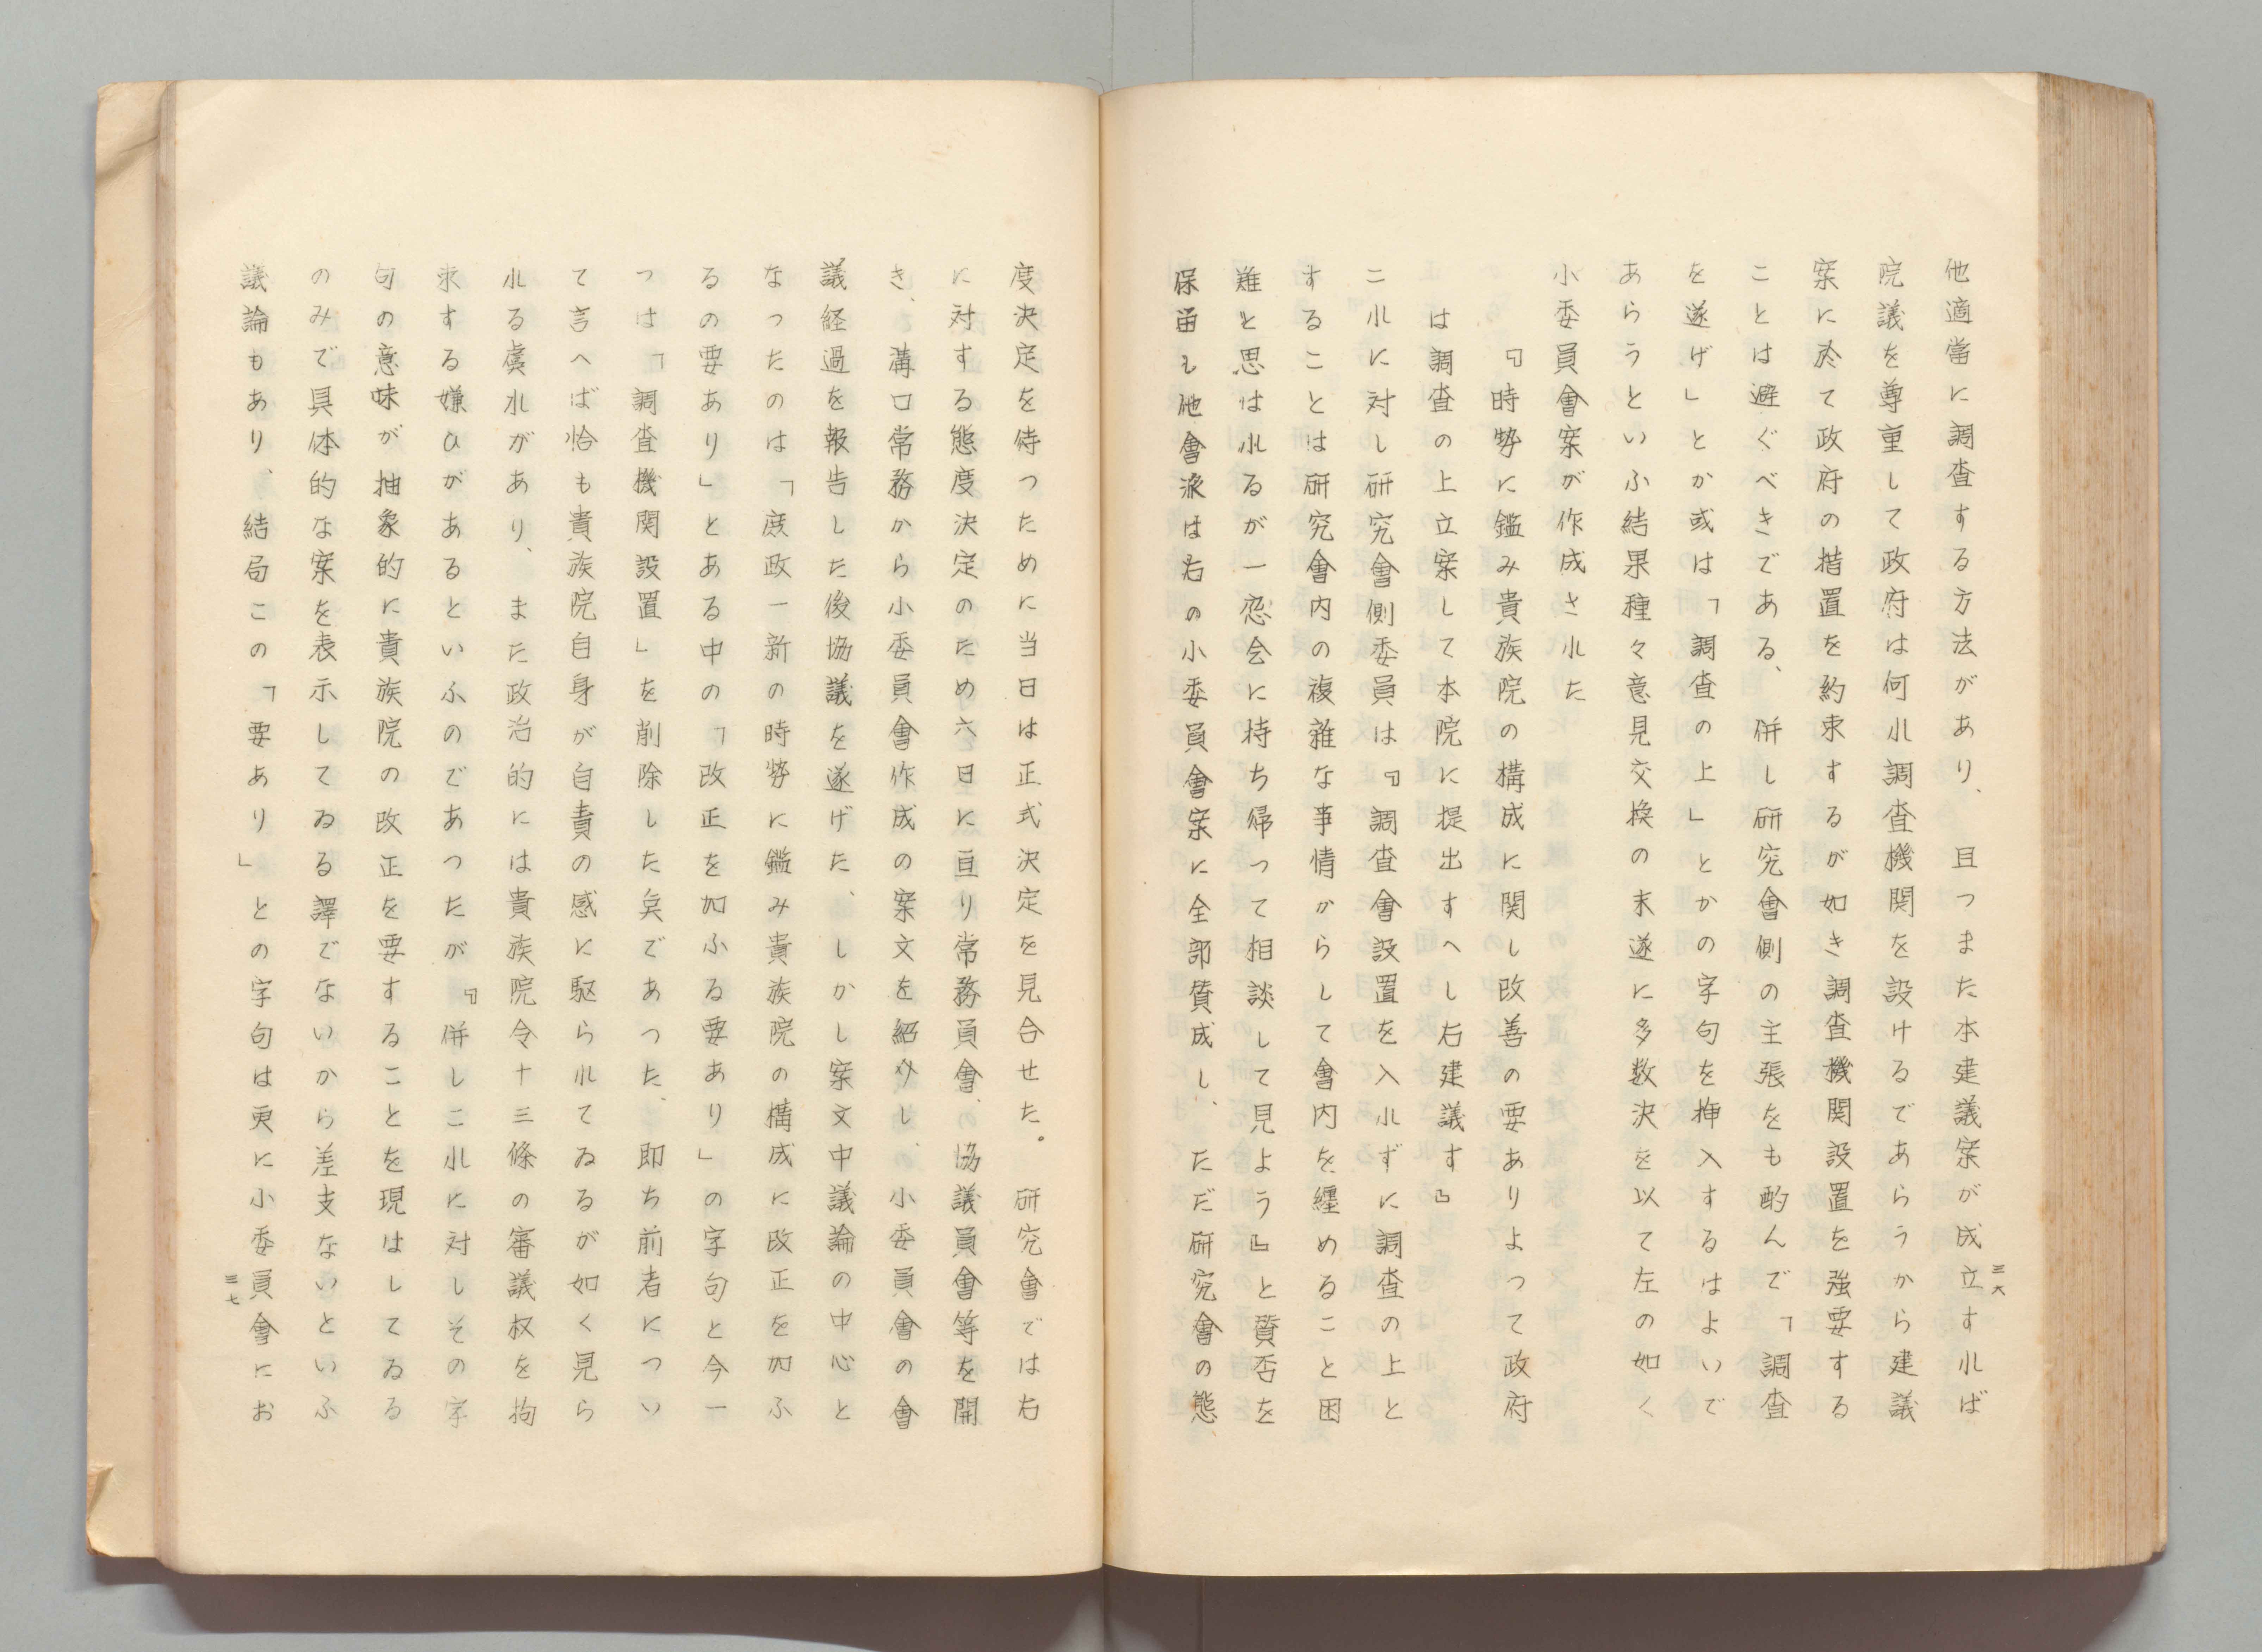 他適當に調査する方法があり、且つまた本建議案が成立すれば
院議を尊重して政府は何れ調査機関を設けるであらうから建議
案に於て政府の措置を約束するが如き調査機関設置を強要する
ことは避ぐべきである、併し研究會側の主張をも酌んで「調査
を遂げ」とか或は「調査の上」とかの字句を挿入するはよいで
あらうといふ結果種々意見交換の末遂に多数決を以て左の如く
小委員會案が作成された
『時勢に鑑み貴族院の構成に関し改善の要ありよつて政府
は調査の上立案して本院に提出すへし右建議す』
これに対し研究會側委員は『調査會設置を入れずに調査の上と
することは研究會内の複雑な事情からして會内を纏めること困
難と思はれるが一応会に持ち帰って相談して見よう』と賛否を
保留し他會派は右の小委員會案に全部賛成し、ただ研究會の態
三六
度決定を待つために当日は正式決定を見合せた。研究會では右
に対する態度決定のため六日に亘り常務員會、協議員會等を開
き、溝口常務から小委員會作成の案文を紹介し、小委員會の會
議経過を報告した後協議を遂げた、しかし案文中議論の中心と
なつたのは「庶政一新の時勢に鑑み貴族院の構成に改正を加ふ
るの要あり」とある中の「改正を加ふる要あり」の字句と今一
つは「調査機関設置」を削除した矣であつた、即ち前者につい
て言へば恰も貴族院自身が自責の感に駆られてゐるが如く見ら
れる虞れがあり、また政治的には貴族院令十三條の審議权を拘
束する嫌ひがあるといふのであつたが『併しこれに対しその字
句の意味が抽象的に貴族院の改正を要することを現はしてゐる
のみで具体的な案を表示してゐる譯でないから差支ないといふ
議論もあり、結局この「要あり」との字句は更に小委員會にお
三七